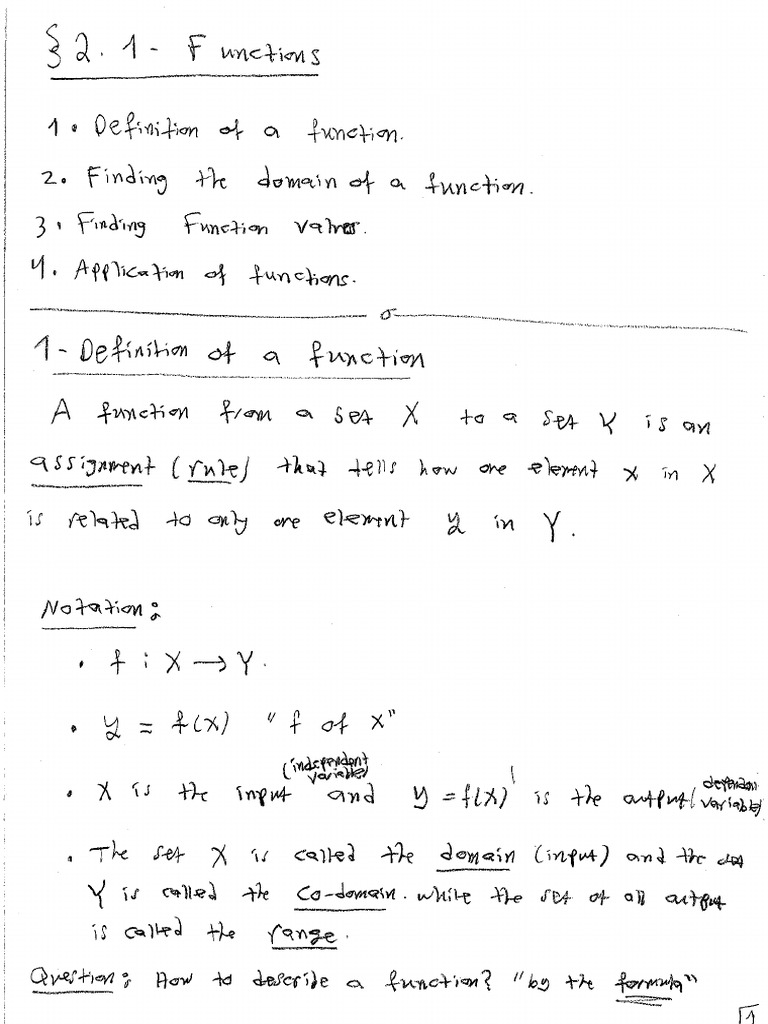 § 2.1 - Functions
1. Definition of a function.
2. Finding the domain of a function.
3. Finding Function values.
4. Application of functions.
1 - Definition of a function
A function from a set X to a set Y is an
assignment (rule) that tells how one element x in X
is related to only one element y in Y.
Notation:
• f : X → Y.
• y = f(x) "f of x"
(independent
variable)
• x is the input and y = f(x) is the output (dependent
variable)
• The set X is called the domain (input) and the set
Y is called the co-domain. while the set of all output
is called the range.
Question: How to describe a function? "by the formula"
1